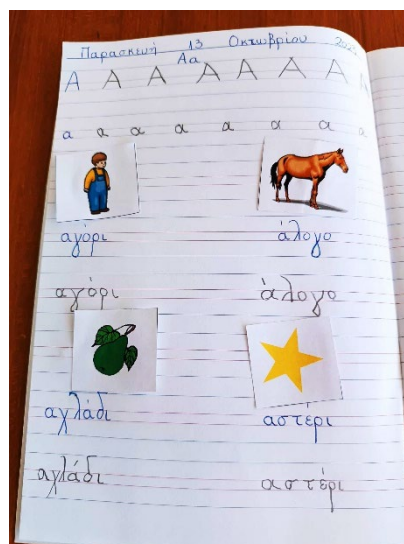 Παρασκευή 13 Οκτωβρίου
Αα
Α Α Α Α Α Α Α Α
α α α α α α α α
αγόρι άλογο
αγόρι άλογο
αχλάδι αστέρι
αχλάδι αστέρι